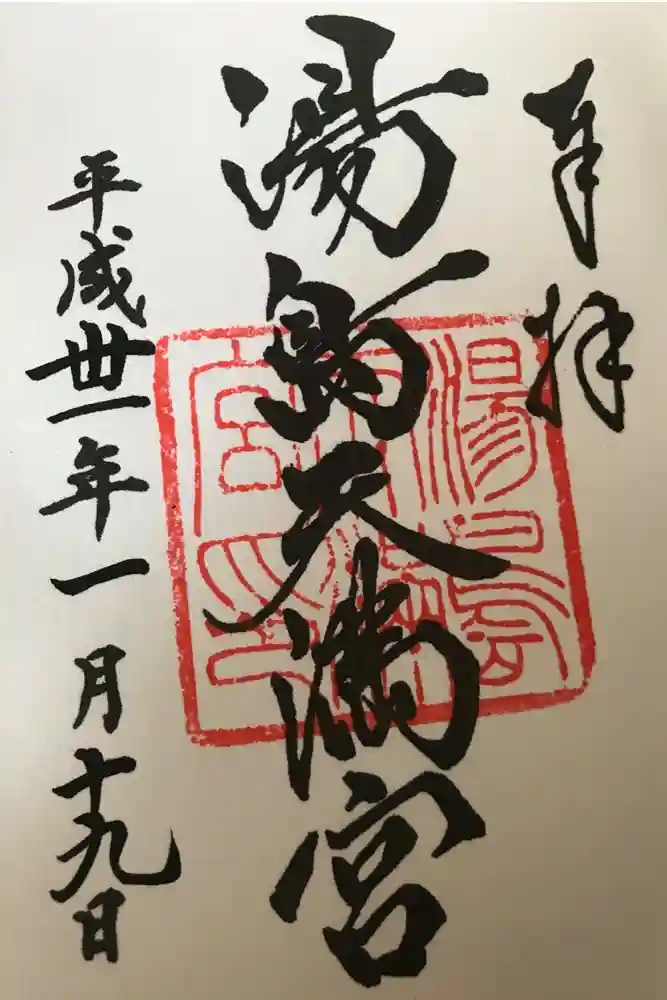 奉拝
湯島天満宮
平成丗一年一月十九日
湯島
天満
宮印